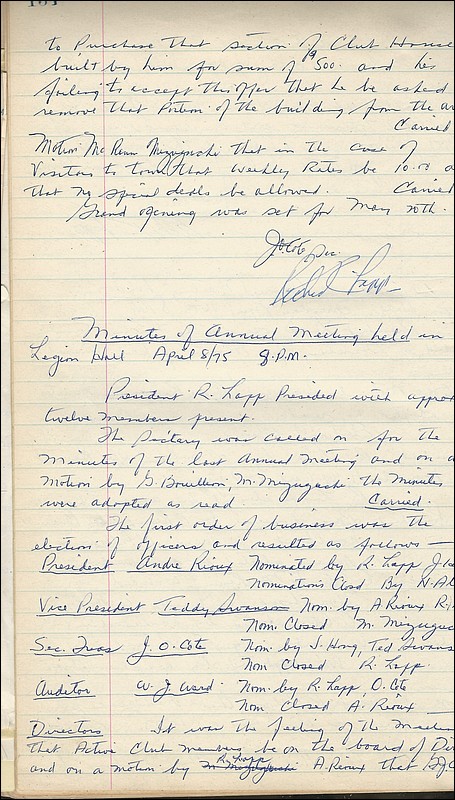 to Purchase that section of Club House
built by him for sum of $500. and his
failing to accept this offer that he be asked
remove that Portion of the building from the
Carried
Motion Mizuguchi that in the case of
Visitors to town that Weekly Rates be 10.00
that no special deals be allowed. Carried
Grand opening was set for May 20th.
J.O. Cote Sec.
Richard Lapp
Minutes of Annual Meeting held in
Legion Hall April 8/75 8.P.M.
President R. Lapp Presided with approx
twelve members present.
The Sectary was called on for the
Minutes of the last Annual Meeting and on a
Motion by G. Bouillion, M. Mizuguchi the Minutes
were adopted as read Carried.
The first order of business was the
election of officers and resulted as follows —
President Andre Rioux Nominated by R. Lapp
Nominations Closd By
Vice President Teddy Swanson Nom. by A Rioux
Nom. Closed M. Mizuguc
Sec. Treas J. O. Cote Nom. by J. Hong, Ted Swans
Nom Closed R. Lapp.
Auditor W. J. Ward. Nom. by R. Lapp, O. Cote
Nom Closed A. Rioux
Directors It was the feeling of the Meetin
that Active Club members be on the board of Di
R. Lapp
and on a motion by M Mizuguchi A. Rioux that